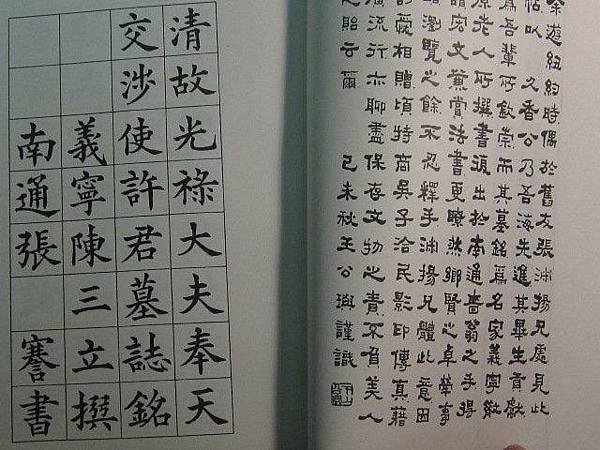 余遊紐約時偶於舊友張沖揚兄處見此
帖以 久香公乃吾海先進其畢生貢獻
為吾輩所欽崇而其墓銘為名家義寧散
原老人所撰書復出於南通嗇翁之手得
讀宏文兼賞法書更瞭然鄉賢之卓犖事
蹟瀏覽之餘不忍釋手沖揚兄體此意因
割愛相贈頃特商吳子洽民影印傳真藉
廣流行亦聊盡保存文物之責不負美人
之貽云爾 己未秋王公璵謹識
清故光祿大夫奉天
交涉使許君墓誌銘
義寧陳三立撰
南通張謇書